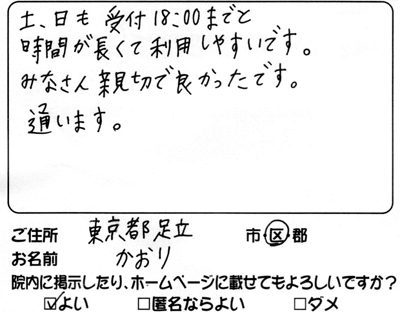 土、日も 受付18:00までと
時間が長くて利用しやすいです。
みなさん親切で良かったです。
通います。
ご住所 東京都足立 市・区・郡
お名前 かおり
院内に掲示したり、ホームページに載せてもよろしいですか？
☑よい □匿名ならよい □ダメ